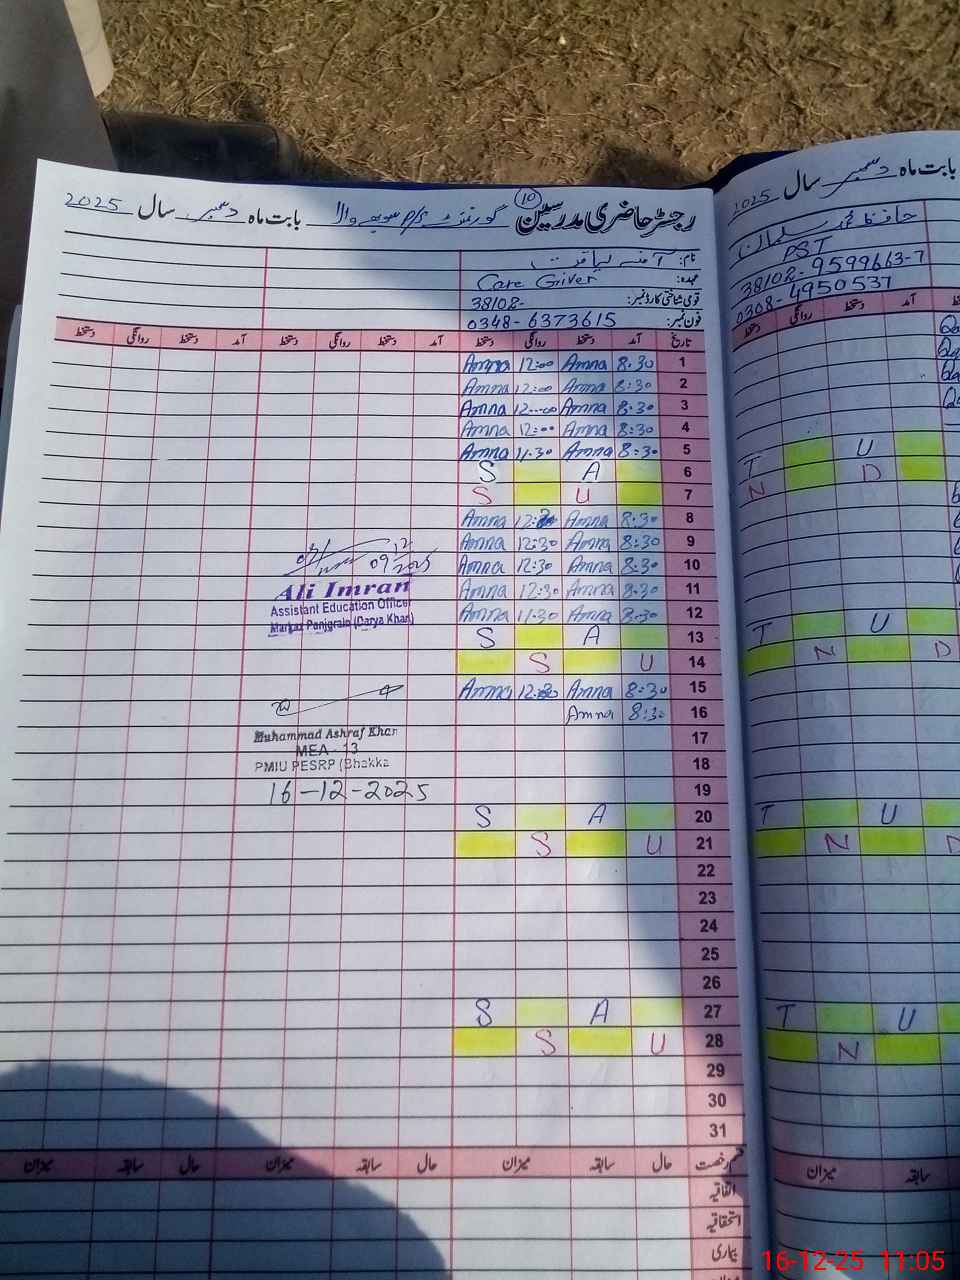 رجسٹر حاضری مدرسین 10 گورنمنٹ P/S والا بابت ماہ دسمبر سال 2025
نام: آمنہ لیاقت
عہدہ: Care Giver
قومی شناختی کارڈ نمبر: 38102-
فون نمبر: 0348-6373615
تاریخ آمد دستخط روانگی دستخط آمد دستخط روانگی دستخط آمد دستخط روانگی دستخط
1 8:30 Amna 12:00 Amna
2 8:30 Amna 12:00 Amna
3 8:30 Amna 12:00 Amna
4 8:30 Amna 12:00 Amna
5 8:30 Amna 11:30 Amna
S A 6
S U 7
8 8:30 Amna 12:30 Amna
9 8:30 Amna 12:30 Amna
10 8:30 Amna 12:30 Amna
11 8:30 Amna 12:30 Amna
12 8:30 Amna 11:30 Amna
S A 13
S U 14
15 8:30 Amna 12:30 Amna
16 8:30 Amna
17
18
19
S A 20
S U 21
22
23
24
25
26
S A 27
S U 28
29
30
31
قسم رخصت حال سابقہ میزان حال سابقہ میزان حال سابقہ میزان
اتفاقیہ
استحقاقیہ
بیماری
09/12/2025
Ali Imran
Assistant Education Officer
Markaz Panjgrain (Darya Khan)
Muhammad Ashraf Khan
MEA - 13
PMIU PESRP (Bhakka
16-12-2025
بابت ماہ دسمبر سال 2025
حافظ محمد سلمان
PST
38102-9599663-7
0308-4950537
آمد روانگی دستخط
T U
N D
T U
N D
T U
N D
T U
N
میزان سابقہ
16-12-25 11:05